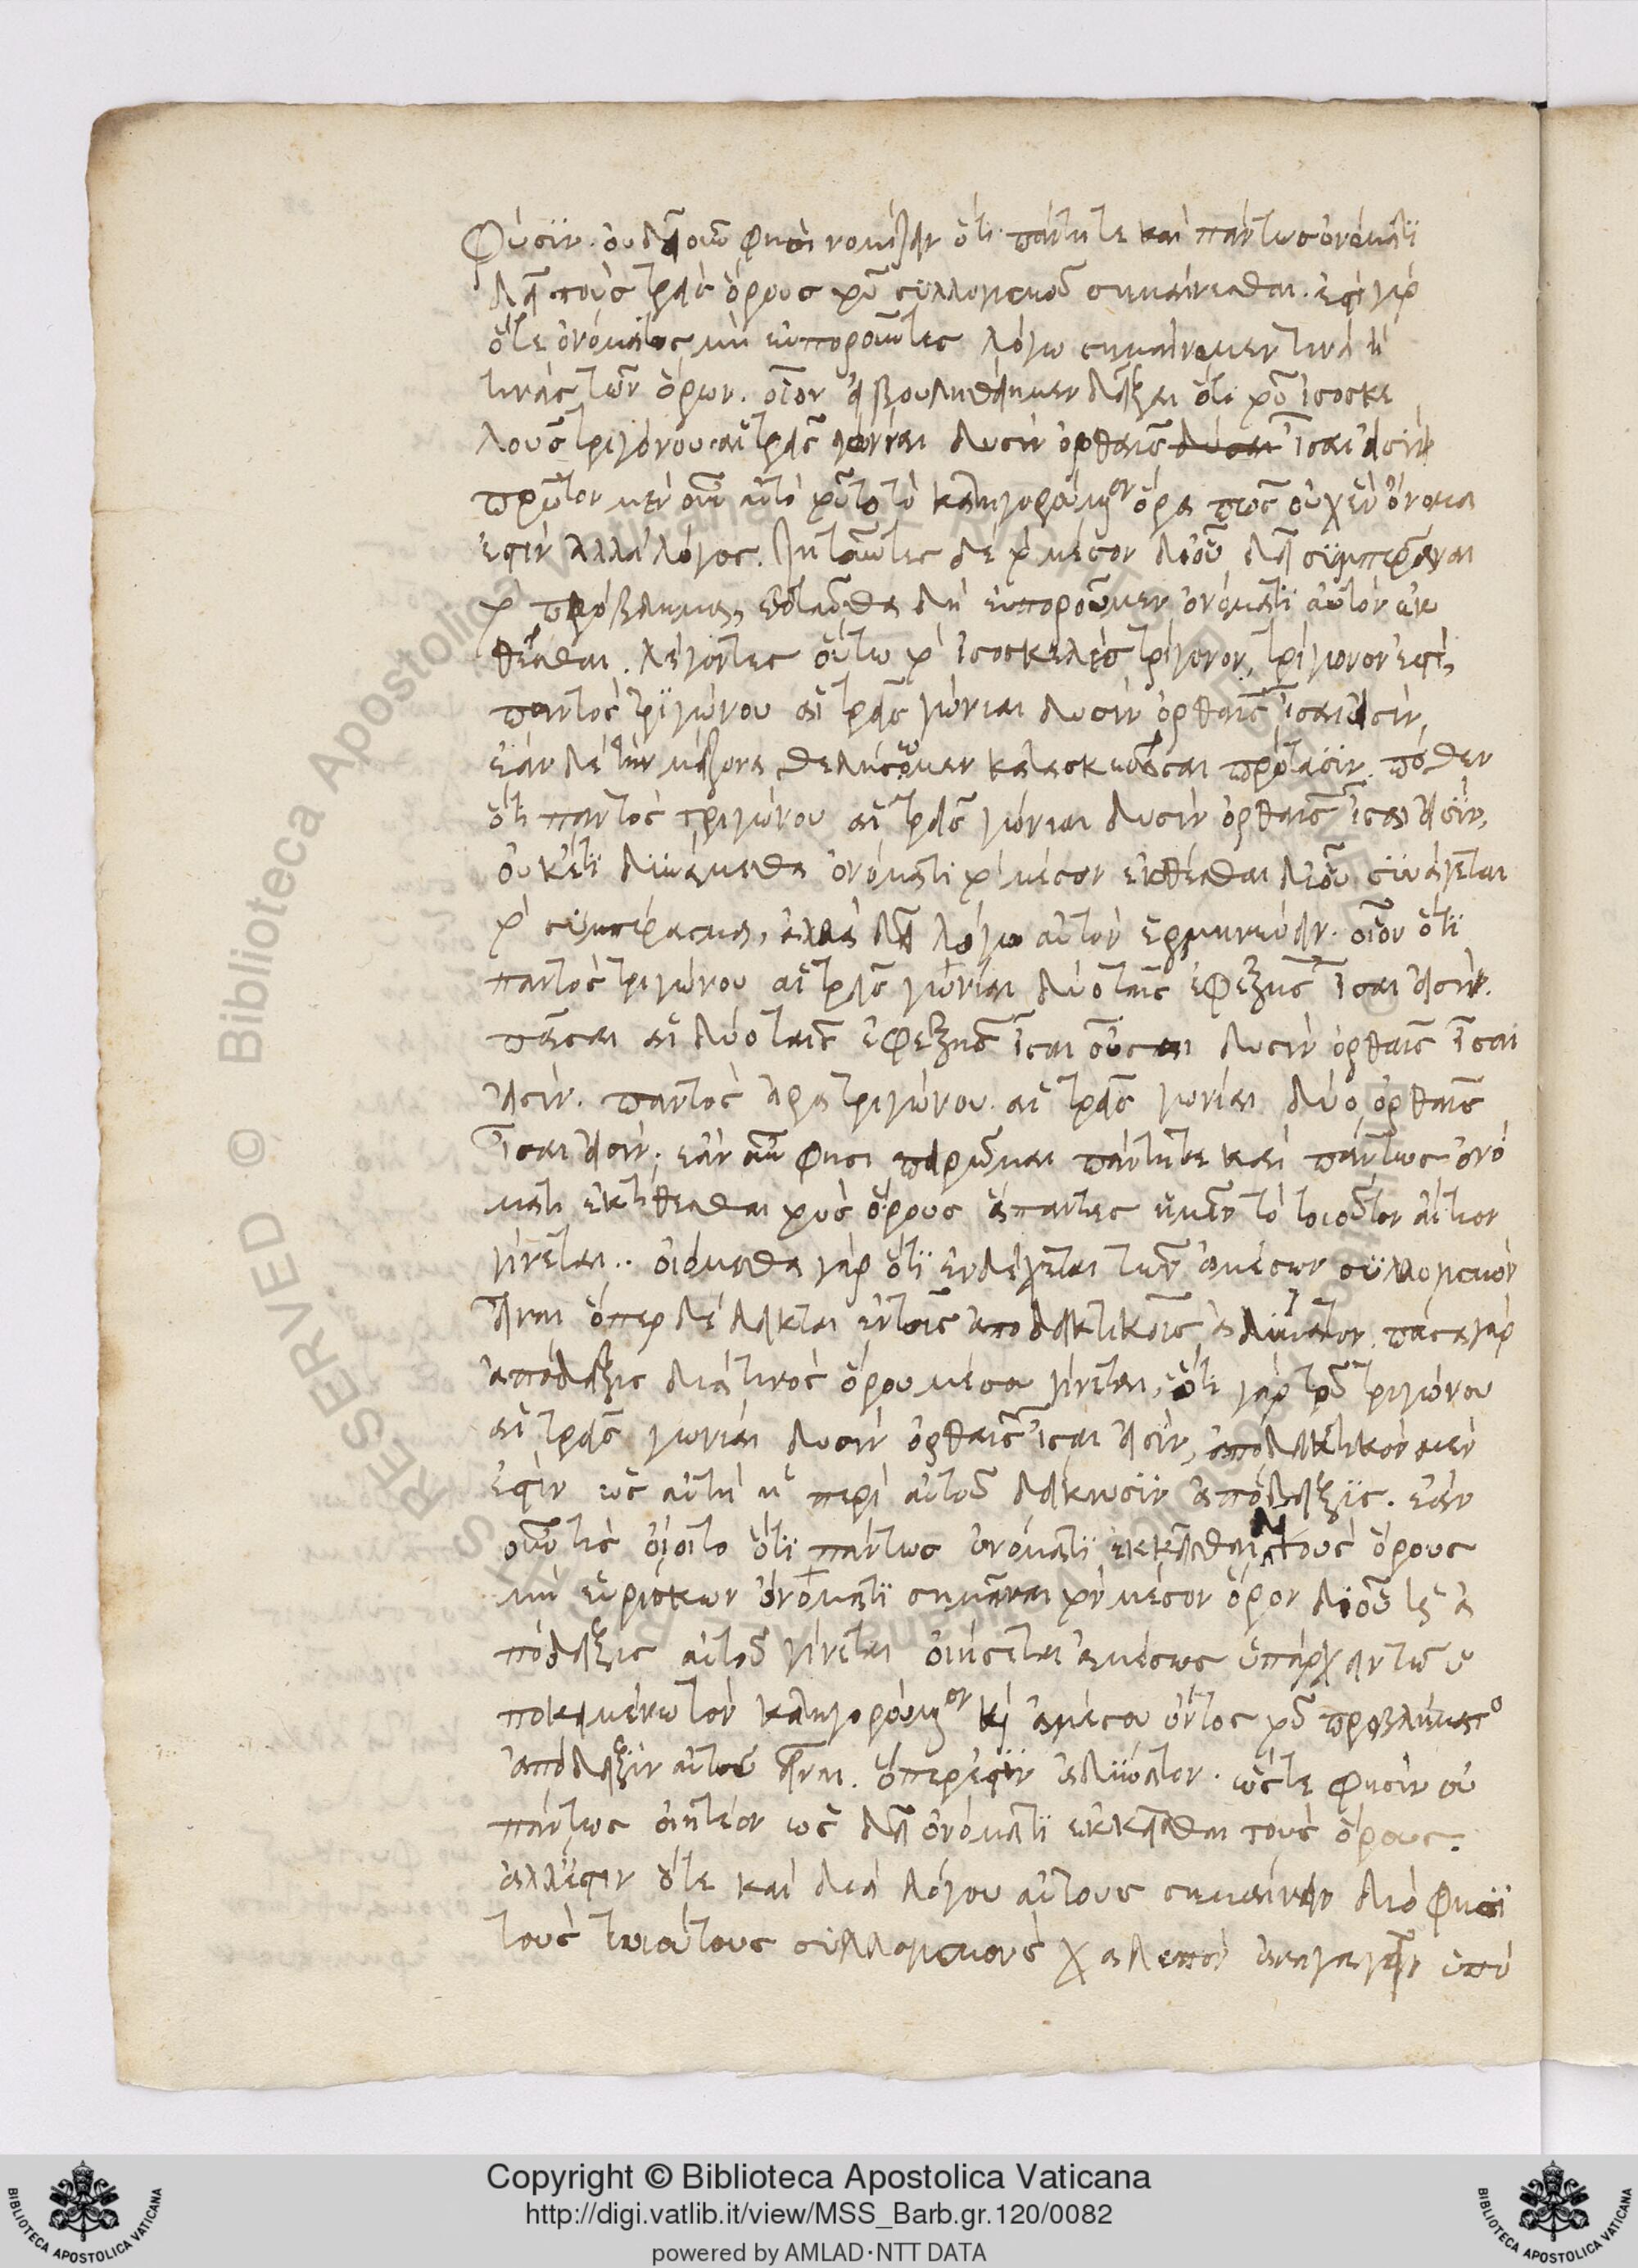 φύσιν. οὐ δεῖ οὖν φησὶ νομίζειν ὅτι πάντῃ τε καὶ πάντως ὀνόματι
δεῖ τοὺς τρεῖς ὅρους τοῦ συλλογισμοῦ σημαίνεσθαι. ἐστὶ γὰρ
ὅτε ὀνόματος μὴ εὐποροῦντες λόγω σημαίνομεν τινὰ ἢ
τινὰς τῶν ὅρων. οἷον εἰ βουληθείημεν δεῖξαι ὅτι τοῦ ἰσοσκε
λοῦς τριγώνου αἱ τρεῖς γωνίαι δυσὶν ὀρθαῖς ἴσαι εἰσὶν
πρῶτον μὲν οὖν αὐτὸ τοῦτο τὸ κατηγορούμενον ὅρα πῶς οὐχ ἓν ὄνομα
ἐστὶν ἀλλὰ λόγος. ζητοῦντες δὲ τὸ μέσον δι οὗ δεῖ συμπερᾶναι
τὸ πρόβλημα, ἐνταῦθα δὴ εὐποροῦμεν ὀνόματι αὐτὸν ἐκ
θέσθαι. λέγοντες οὕτω τὸ ἰσοσκελὲς τρίγωνον, τρίγωνον ἐστι,
παντὸς τριγώνου αἱ τρεῖς γώνιαι δυσὶν ὀρθαῖς ἴσαι εἰσὶν,
ἐὰν δὲ τὴν μείζονα θελήσομεν κατασκευάσαι πρότασιν. πόθεν
ὅτι παντὸς τριγώνου αἱ τρεῖς γώνιαι δυσὶν ὀρθαῖς ἴσαι εἰσὶν,
οὐκέτι δυνάμεθα ὀνόματι τὸ μέσον ἐκθέσθαι δι οὗ συνάγεται
τὸ συμπέρασμα, ἀλλὰ δεῖ λόγω αὐτὸν ἑρμηνεύειν. οἷον ὅτι
παντὸς τριγώνου αἱ τρεῖς γωνίαι δύο ταῖς ἐφεξῆς ἴσαι εἰσὶν.
πᾶσαι αἱ δύο ταῖς ἐφεξῆς ἴσαι οὖσαι δυσὶν ὀρθαῖς ἴσαι
εἰσὶν. παντὸς ἄρα τριγώνου αἱ τρεῖς γωνίαι δύο ὀρθαῖς
ἴσαι εἰσίν; ἐὰν οὖν φησι πειρῶμαι πάντῃ τε καὶ πάντως ὀνό
ματι ἐκτίθεσθαι τοὺς ὅρους ἅπαντες ἡμῖν τὸ τοιοῦτον αἴτιον
γίνεται.. οἰόμεθα γὰρ ὅτι ἐνδέχεται τῶν ἀμέσων συλλογισμὸν
εἶναι ὅπερ δέδεικται ἐν τοῖς ἀποδεικτικοῖς ἀδύνατον. πᾶσα γὰρ
ἀπόδειξις διά τινος ὅρου μέσου γίνεται, ὅτι γὰρ τοῦ τριγώνου
αἱ τρεῖς γωνίαι δυσὶν ὀρθαῖς ἴσαι εἰσὶν, ἀποδεικτικὸν μὲν
ἐστὶν ὡς αὐτὴ ἡ περὶ αὐτοῦ δείκνυσιν ἀπόδειξις. ἐὰν
οὖν τις οἴοιτο ὅτι πάντως ὀνόματι ἐκκεῖσθαι τοὺς ὅρους
μὴ εὑρίσκων ὀνόματι σημᾶναι τὸν μέσον ὅρον δι οὗ ἡ ἀ
πόδειξις αὐτοῦ γίνεται οἰήσεται ἀμέσως ὑπάρχειν τῶ ὑ
ποκειμένω τὸν κατηγορούμενον καὶ ἀμέσου ὄντος τοῦ προβλήματο
ἀπόδειξιν αὐτοῦ εἶναι. ὅπερ ἐστὶν ἀδύνατον. ὥστε φησὶν οὐ
πάντως οἰητέον ὡς δεῖ ὀνόματι ἐκκεῖσθαι τοὺς ὅρους.
ἀλλ' ἔστιν ὅτε καὶ διὰ λόγου αὐτοὺς σημαίνειν διό φησι
τοὺς τοιούτους συλλογισμοὺς χαλεπὸν ἀναγαγεῖν ὑπὸ